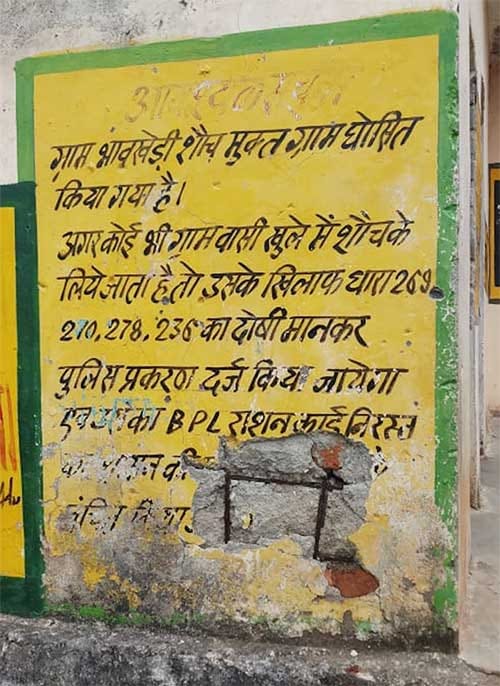 ग्राम भावखेड़ी शौच मुक्त ग्राम घोसित
किया गया है।
अगर कोई भी ग्राम वासी खुले में शौच के
लिये जाता है तो उसके खिलाफ धारा 269,
270, 278, 236 का दोषी मानकर
पुलिस प्रकरण दर्ज किया जायेगा
एवं उसका BPL राशन कार्ड निरस्त